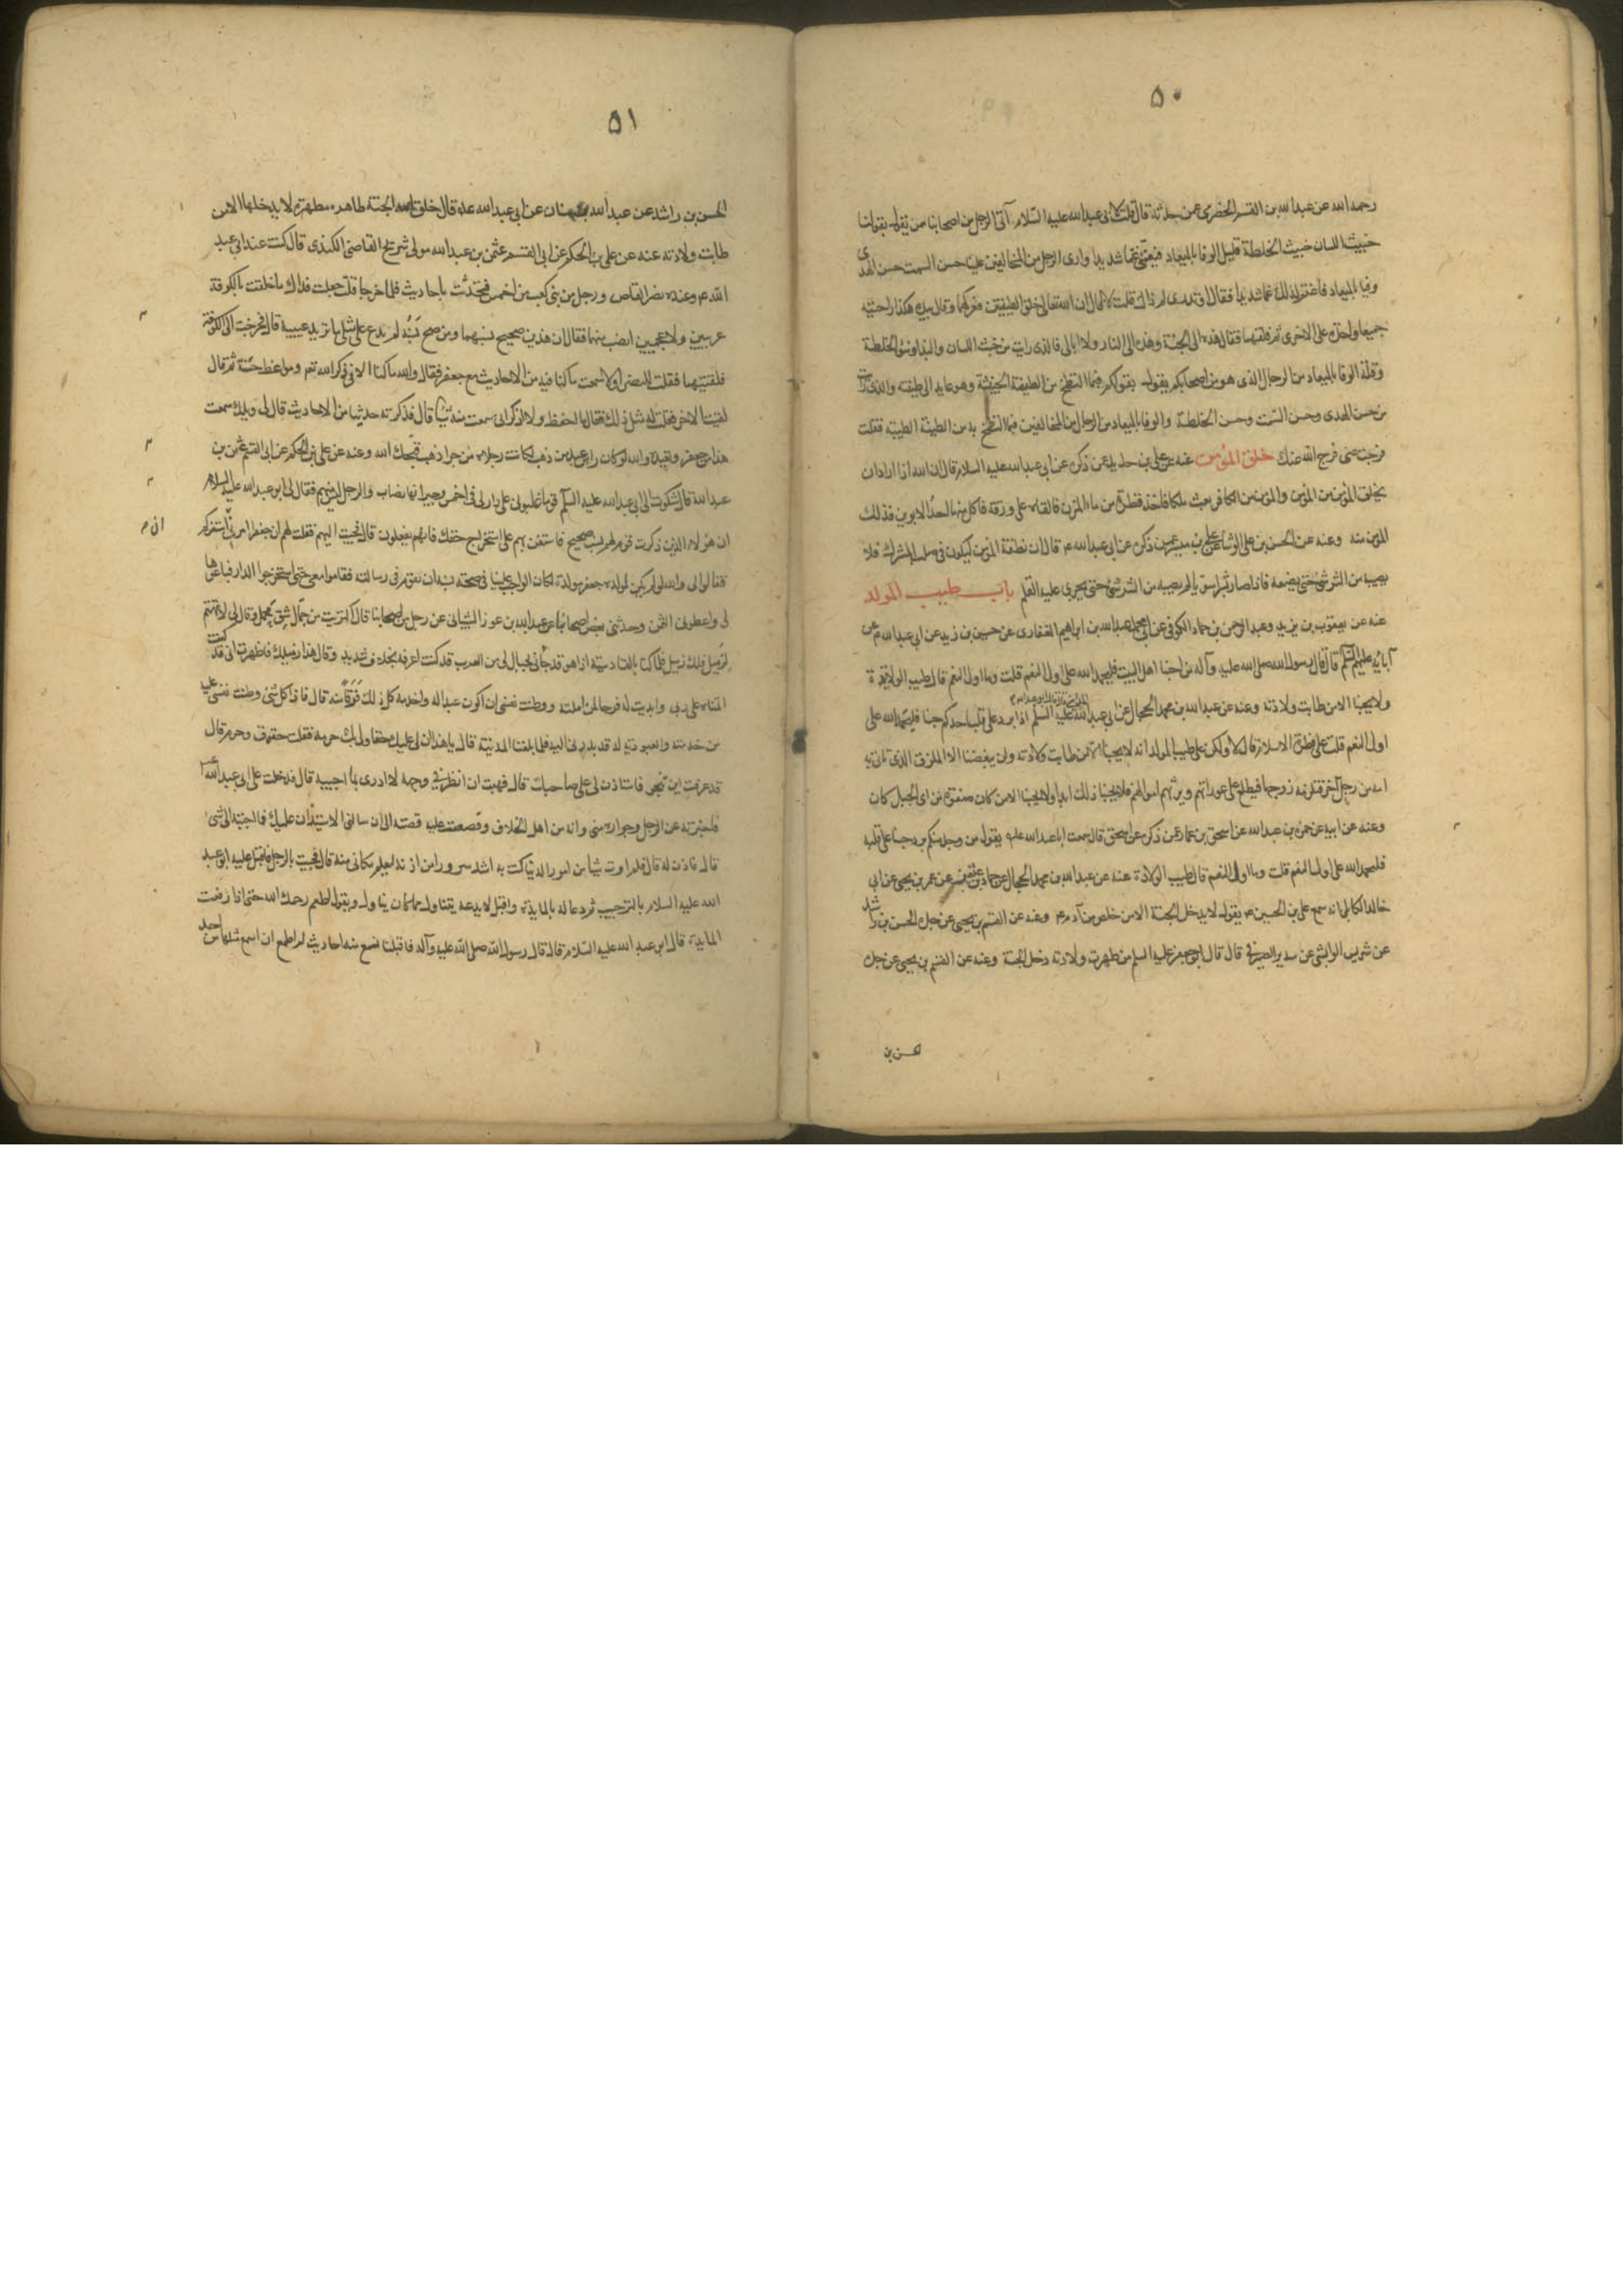 ٥٠
رحمه الله عن عبدا لله بن القسم الحضرمى عمن حدثه قال قلت لابى عبدالله عليه السلام آتى الرجل من اصحابنا من يقول بقولنا
خبيث اللسان خبيث الخلطة قليل الوفا بالميعاد فيغمنى غما شديدا وارى الرجل من المخالفين علينا حسن السمت حسن الهدى
وفيا بالميعاد فاغتم لذلك غما شديدا فقال او تدرى لم ذاك قلت لا قال ان الله تعالى خلق الطينتين فعركهما وقال بيده هكذا راحتيه
جميعا واحدة على الاخرى ثم فلقهما فقال هذه الى الجنة وهذه الى النار ولا ابالى فالذى رايت من خبث اللسان والبذا وسوء الخلطة
وقلة الوفا بالميعاد من الرجل الذى هو من اصحابكم يقول بقولكم فبما التطخ من الطينة الخبيثة وهو عايد الى طينته والذى رايت
من حسن الهدى وحسن السمت وحسن الخلطة والوفا بالميعاد من الرجال من المخالفين فبما التطخ به من الطينة الطيبة فقلت
فرجت عنى فرج الله عنك خلق المؤمن عنه عن على بن حديد عمن ذكره عن ابى عبدالله عليه السلام قال ان الله اذا ارادان
يخلق المؤمن من المؤمن والمؤمن من الكافر بعث ملكا فاخذ قطرة من ماء المزن فالقاه على ورقة فاكل منها احد الابوين فذلك
المؤمن منه وعنه عن الحسن بن على الوشا عن على بن ميسر عمن ذكره عن ابى عبدالله ع قال ان نطفة المؤمن ليكون فى صلب المشرك فلا
يصيبه من الشر شئ حتى يضعه فاذا صار بشرا سويا لم يصيبه من الشر شئ حتى يجرى عليه القلم باب طيب المولد
عنه عن يعقوب بن يزيد وعبد الرحمن بن حماد الكوفى عن ابى محمد عبدالله بن ابراهيم الغفارى عن حسين بن زيد عن ابى عبدالله ع عن
آبائه عليهم السلم قال قال رسول الله صلى الله عليه وآله من احبنا اهل البيت فليحمد الله على اول النعم قلت وما اول النعم قال طيب الولادة
ولا يحبنا الا من طابت ولادته وعنه عن عبدالله بن محمد الحجال عن ابى عبدالله عليه السلم اذا برد على قلب احدكم حبنا فليحمد الله على
اول النعم قلت على فطرة الاسلام قال لا ولكن على طيب المولد انه لا يحبنا الا من طابت ولادته ولن يبغضنا الا الملزق الذى تاتى به
امه من رجل آخر فتلزمه زوجها فيطلع على عوراتهم ويرثهم اموالهم فلا يحبنا ذلك ابدا ولا يحبنا الا من كان صفوة من اى الجبل كان
وعنه عن ابيه عن حمزة بن عبدالله عن اسحق بن عمار عمن ذكره عن اسحق قال سمعت ابا عبدالله عليه يقول من وجد منكم برد حبنا على قلبه
فليحمد الله على اول النعم قلت وما اول النعم قال طيب الولادة عنه عن عبدالله بن محمد الحجال عن حماد بن عثمن عن عمر بن يحيى عن ابى
خالد الكابلى انه سمع على بن الحسين ع يقول لا يدخل الجنة الا من خلص من آدم ع وعنه عن القسم بن يحيى عن جده الحسن بن راشد
عن شريس الوابشى عن سدير الصيرفى قال قال ابو جعفر عليه السلم من طهرت ولادته دخل الجنة وعنه عن القسم بن يحيى عن جده
لحسن بن
٥١
الحسن بن راشد عن عبدالله بن سنان عن ابى عبدالله عليه قال خلق الله الجنة طاهرة مطهرة لا يدخلها الا من
طابت ولادته عنه عن على بن الحكم عن ابى القسم عثمن بن عبدالله مولى شريح القاضى الكندى قال كنت عند ابى عبد
الله ع وعنده نضر القاص ورجل من بنى كعب من لخم فحدثت باحاديث فلما خرجا قلت جعلت فداك ما خلفت بالكوفة
عربيين ولا عجميين انصب منهما فقال ان هذين صحيح نسبهما ومن صح نسبه لم يدع على مثلى ما تريد عيبيه قال فخرجت الى الكوفة
فلقيتهما فقلت للمضرى اولا سمعت ما كنا فيه من الاحاديث مع جعفر فقال والله ما كنا الا فى ذكر الله تعم ومواعظ حسنة ثم قال
لقيت الاخر فقلت له مثل ذلك فقال ما احفظ ولا اذكر انى سمعت منه شيئا قال فذكرته حديثا من الاحاديث قال لى ويلك سمعت
هذا من جعفر وتعيده والله لو كان راس عبد من ذهب لكانت رجلاه من خشب اذهب قبحك الله وعنه عن على بن الحكم عن ابى القسم عثمن بن
عبدالله قال شكوت الى ابى عبدالله عليه السلم قوما غلبونى على دار لى فى لخم وجيرانها نصاب والرجل ليس منهم فقال لى ابو عبدالله عليه السلام
ان هؤلاء الذين ذكرت قوم لهم نسب صحيح فاستعن بهم على استخراج حقك فانهم يفعلون قال فجئت اليهم فقلت لهم ان جعفرا امرنى استعنكم
فقالوا لى والله لو لم يكن لمولاه جعفر مولدة لكان الواجب علينا فى صحة نسبه ان نقوم فى رسالته فقاموا معى حتى استخرجوا الدار فباعوها
لى واعطونى الثمن وحدثنى بعض اصحابنا عن عبدالله بن عون الشيبانى عن رجل من اصحابنا قال اكتريت من جمال شق محمل وقال لى لا تهتم
لزميل فلك زميل فلما كنا بالقادسية اذا هو قد جانى بجبال لى من العرب قد كنت اعرفه بخلاف شديد وقال هذا زميلك فاظهرت انى قد كنت
اتمناه على ربى وابديت له فرحا لمزاملته ووطنت نفسى ان اكون عبدا له واخدمه كل ذلك فرقا منه قال فاذا كل شئ وطنت نفسى عليه
من خدمته والعبودية له قد بدر بى اليه فلما بلغنا المدينة قال يا هذا ان لى عليك حقا ولى بك حرمة فقلت حقوق وحرم قال
قد عرفت اين تنحو فاستاذن لى على صاحبك قال فبهت ان انظر فى وجهه لا ادرى بما اجيبه قال فدخلت على ابى عبدالله ع
فاخبرته عن الرجل وجواره منى وانه من اهل الخلاف وقصصت عليه قصته الى ان سالنى الاستيذان عليك فما اجبته الى شئ
قال فاذن له قال فلم اوت شيئا من امور الدنيا كنت به اشد سرورا من اذنه ليعلم مكانى منه قال فجئت بالرجل فاقبل عليه ابو عبد
الله عليه السلام بالترحيب ثم دعا له بالمايدة واقبل لا يدعه يتناول الا مما كان يتناول ويقول اطعم رحمك الله حتى اذا رفعت
المايدة قال ابو عبد الله عليه السلام قال قال رسول الله صلى الله عليه وآله فاقبلنا نسمع منه احاديث لم اطمع ان اسمع مثلها من احد